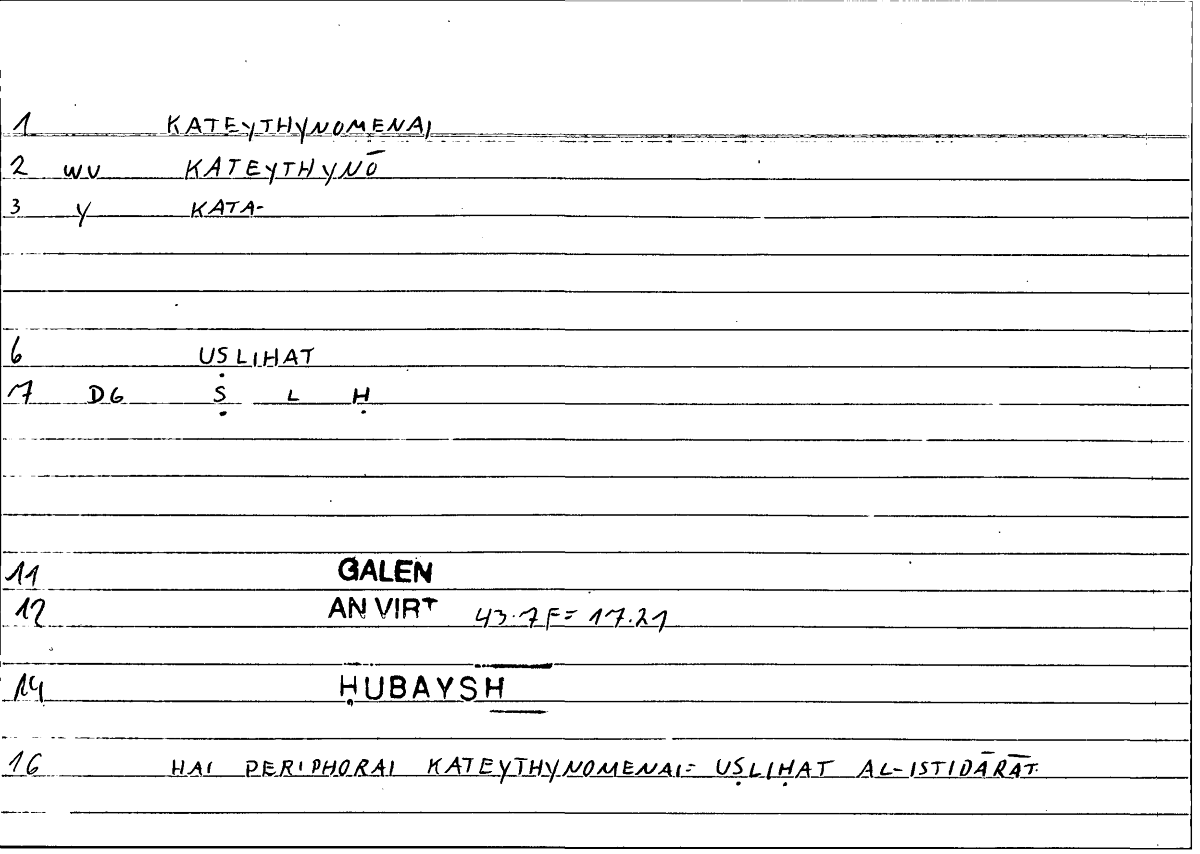 1 KATEYTHYNOMENAI
2 WV KATEYTHYNŌ
3 Y KATA-
6 UṢLIHAT
7 DG Ṣ L Ḥ
11 GALEN
12 AN VIRT 43.7F= 17.21
14 ḤUBAYSH
16 HAI PERIPHORAI KATEYTHYNOMENAI= UṢLIḤAT AL-ISTIDĀRĀT.